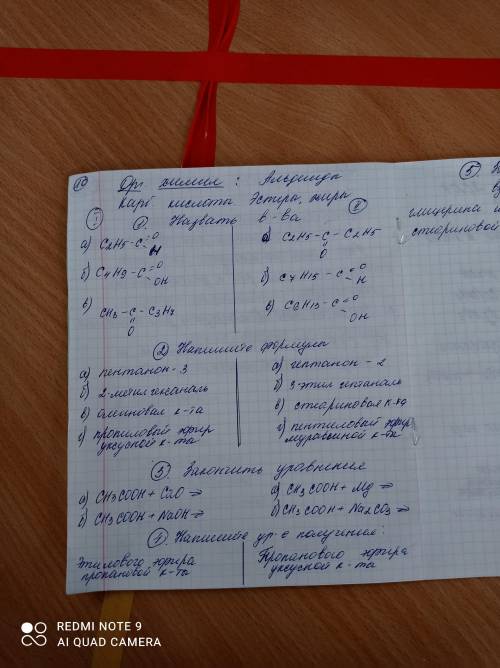 10 Орг химия : Альдегиды
Карб кислоты Эстеры, жиры
① Назвать в-ва
а) C2H5-C =O H
б) C4H9-C =O OH
в) CH3-C-C3H7
O
а) C2H5-C-C2H5
O
б) C7H15-C =O H
в) C6H13-C =O OH
② Напишите формулы
а) пентанон-3
б) 2-метил гексаналь
в) олеиновая к-та
г) пропиловый эфир
уксусной к-та
а) гептанон-2
б) 3-этил гептаналь
в) стеариновая к-та
г) пентиловый эфир
муравьиной к-та
③ Закончить уравнения
а) CH3COOH + CaO =
б) CH3COOH + NaOH =
а) CH3COOH + Mg =
б) CH3COOH + Na2CO3 =
④ Напишите ур-е получения:
Этилового эфира
пропановой к-та
Пропанового эфира
уксусной к-та
⑤
глицерина и
стеариновой
REDMI NOTE 9
AI QUAD CAMERA